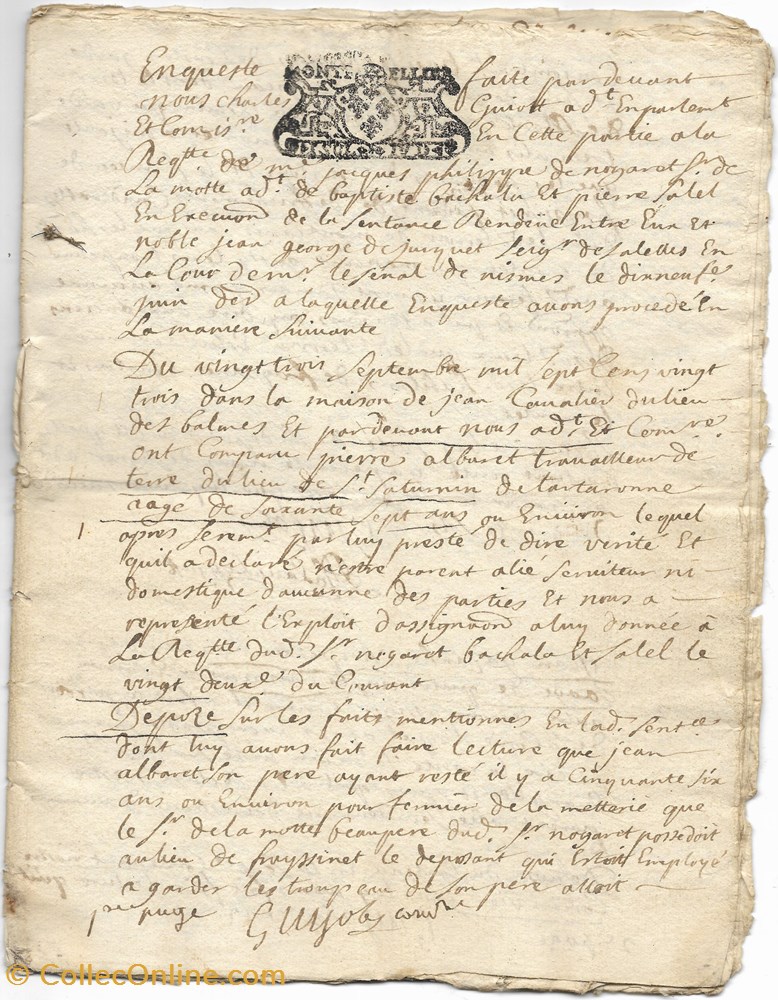 Enqueste MONTPELLIER faite par devant
nous Charles Guiott ad.t En parlemt
Et Com.isre En Cette partie a la
Reqtte de m.r jacques philippe de nogaret Sr. de
La motte ad.t de baptiste bachala Et pierre Salel
En Execuon de la Sentance Rendeüe Entre Eux Et
noble jean george de jacquet Seigr de Salettes En
La Cour de mr. le Senal de nismes le dixneufe.
juin der a laquelle Enqueste avons procedé En
La maniere Suivante
Du vingt trois Septembre mil Sept Cens vingt
trois dans la maison de jean Cavalier du lieu
des balmes Et par devant nous adt. Et Comre.
ont Comparu pierre albaret travailleur de
terre du lieu de St. Saturnin de tartaronne
agé de Soixante Sept ans ou Environ lequel
1 apres Seremt. par luy presté de dire verité Et
quil a declaré n'estre parent alié Serviteur ni
domestique d'aucunne des parties Et nous a
representé l'Exploit d'assignaon a luy donnée a
La Reqtte dud. Sr. nogaret bachala Et Salel le
vingt deuxe. du Courant
Depoze Sur les faits mentionnes En lad. Sentce
dont luy avons fait faire lecture que jean
albaret Son pere ayant resté il y a Cinquante Six
ans ou Environ pour fermier de la metterie que
le Sr. de la motte beaupere dud. Sr. nogaret possedoit
au lieu de frayssinet le deposant qui Estoit Employé
a garder les troupeau de Son pere alloit
pre page Guyot comre
© CollecOnline.com